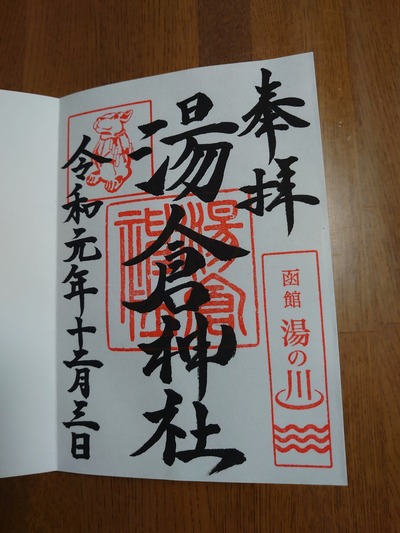 奉拝
函館 湯の川
湯倉神社
湯倉神社
令和元年十二月三日